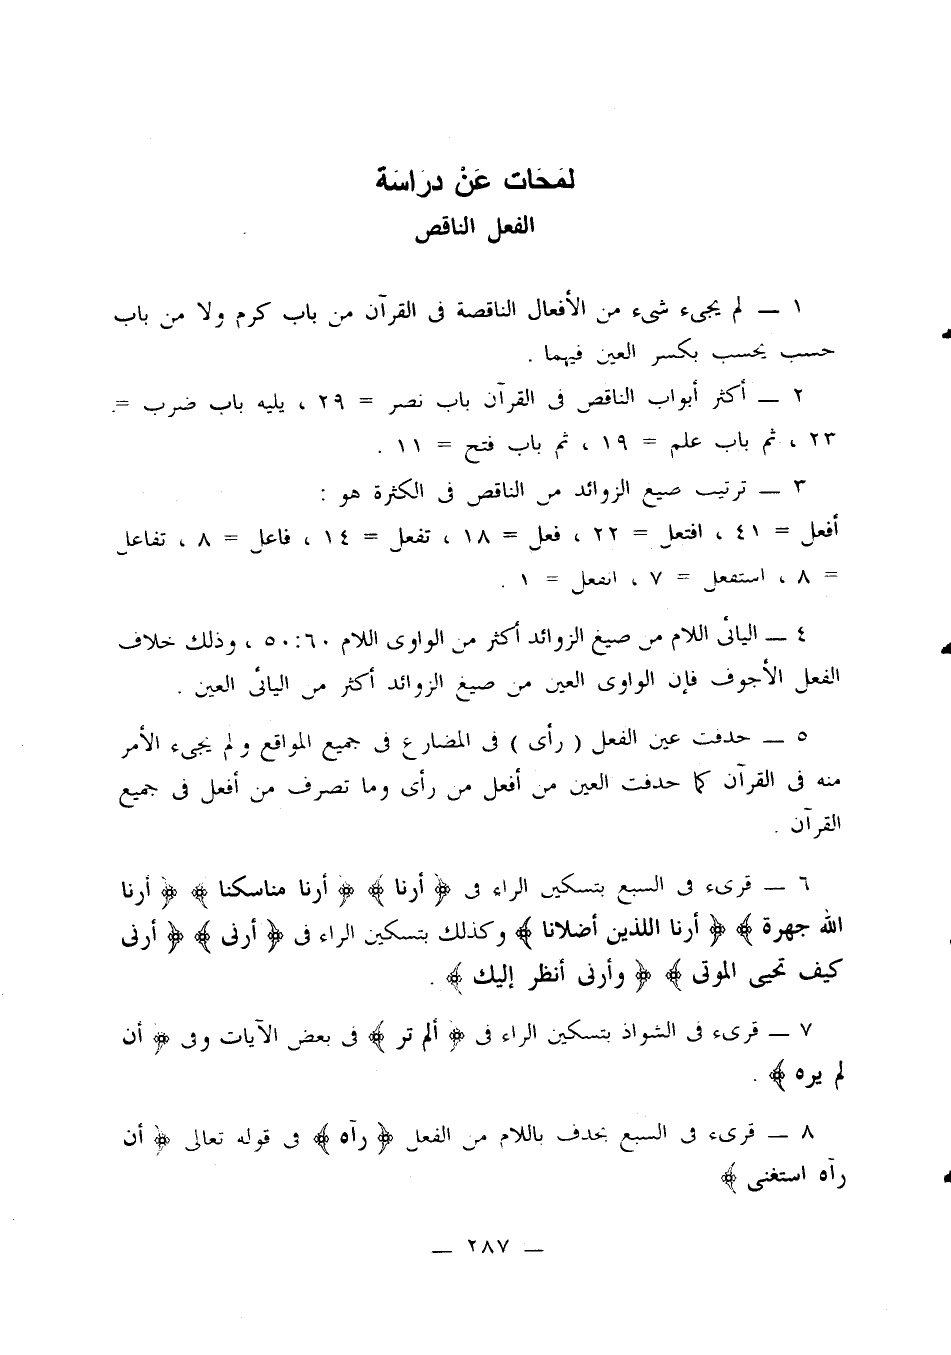 لمَحَات عَنْ دِرَاسَة
الفعل الناقص
١ — لم يجىء شىء من الأفعال الناقصة فى القرآن من باب كرم ولا من باب
حسب يحسب بكسر العين فيهما .
٢ — أكثر أبواب الناقص فى القرآن باب نصر = ٢٩ ، يليه باب ضرب =
٢٣ ، ثم باب علم = ١٩ ، ثم باب فتح = ١١ .
٣ — ترتيب صيغ الزوائد من الناقص فى الكثرة هو :
أفعل = ٤١ ، افتعل = ٢٢ ، فعل = ١٨ ، تفعل = ١٤ ، فاعل = ٨ ، تفاعل
= ٨ ، استفعل = ٧ ، انفعل = ١ .
٤ — اليائى اللام من صيغ الزوائد أكثر من الواوى اللام ٥٠:٦٠ ، وذلك خلاف
الفعل الأجوف فإن الواوى العين من صيغ الزوائد أكثر من اليائى العين .
٥ — حذفت عين الفعل ( رأى ) فى المضارع فى جميع المواقع ولم يجىء الأمر
منه فى القرآن كما حذفت العين من أفعل من رأى وما تصرف من أفعل فى جميع
القرآن .
٦ — قرىء فى السبع بتسكين الراء فى ﴿ أرنا ﴾ ﴿ أرنا مناسكنا ﴾ ﴿ أرنا
الله جهرة ﴾ ﴿ أرنا اللذين أضلانا ﴾ وكذلك بتسكين الراء فى ﴿ أرنى ﴾ ﴿ أرنى
كيف تحيى الموتى ﴾ ﴿ وأرنى أنظر إليك ﴾ .
٧ — قرىء فى الشواذ بتسكين الراء فى ﴿ ألم تر ﴾ فى بعض الآيات وفى ﴿ أن
لم يره ﴾ .
٨ — قرىء فى السبع بحذف باللام من الفعل ﴿ رآه ﴾ فى قوله تعالى ﴿ أن
رآه استغنى ﴾
— ٢٨٧ —